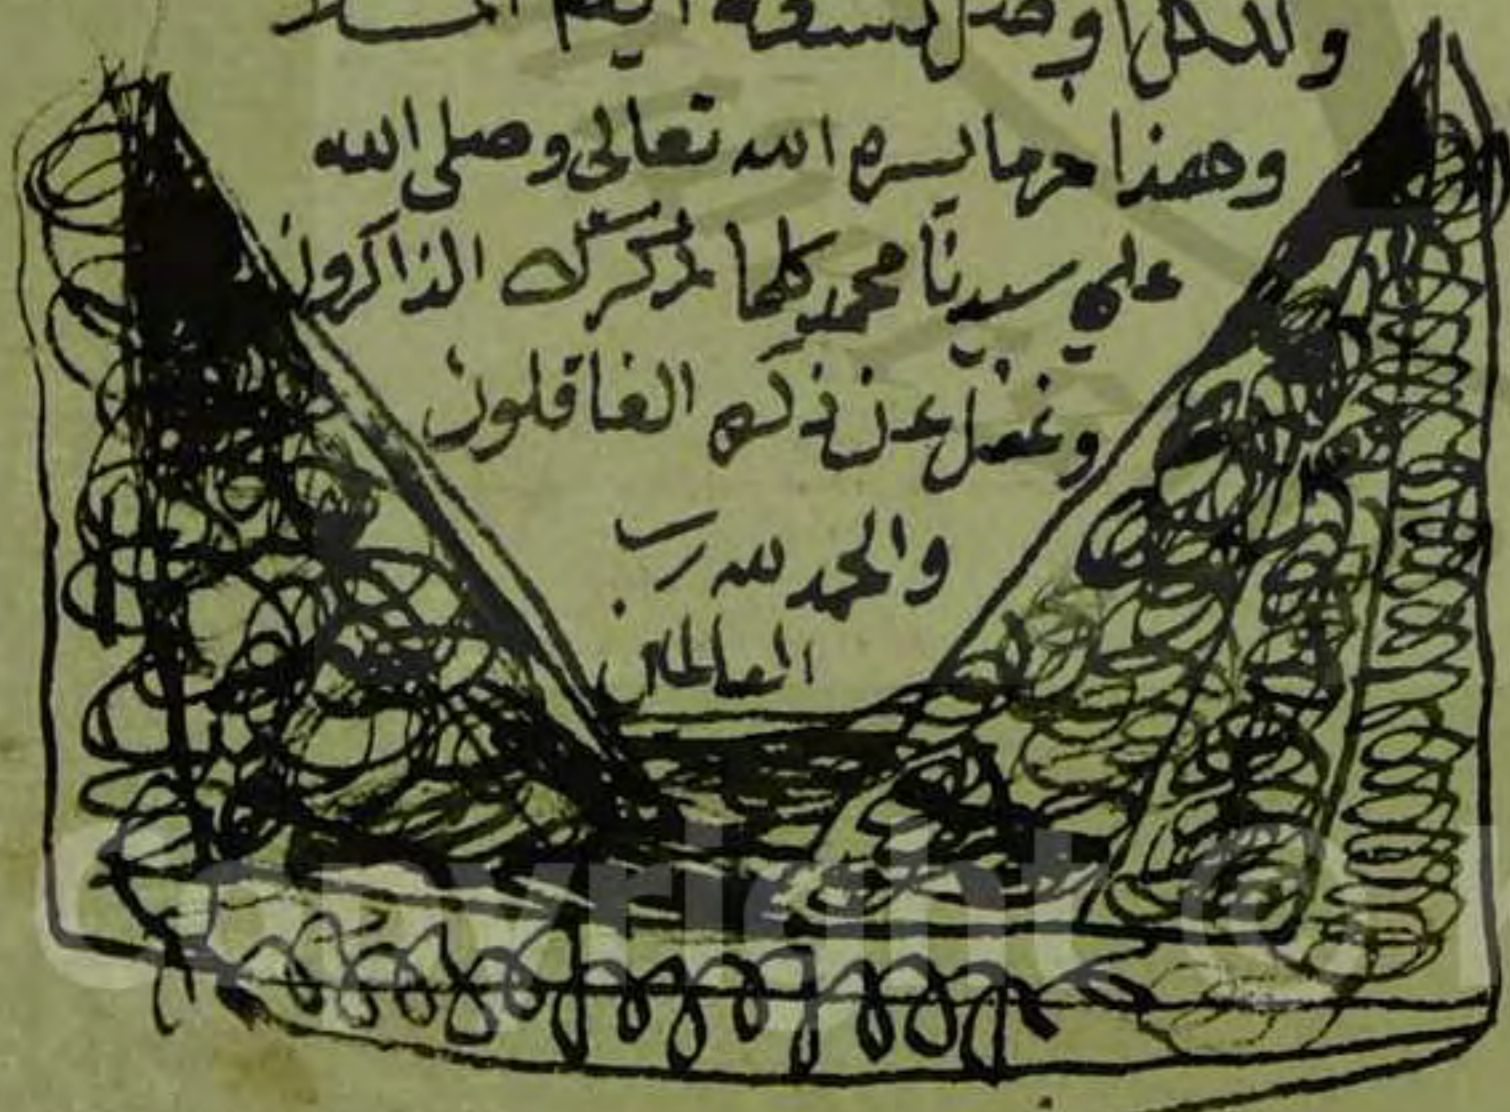 وهذا خر ما يسره الله تعالى وصلى الله
على سيدنا محمد كلما ذكرك الذاكرون
وغفل عن ذكرك الغافلون
والحمد لله رب
العالمين
Copyright ©